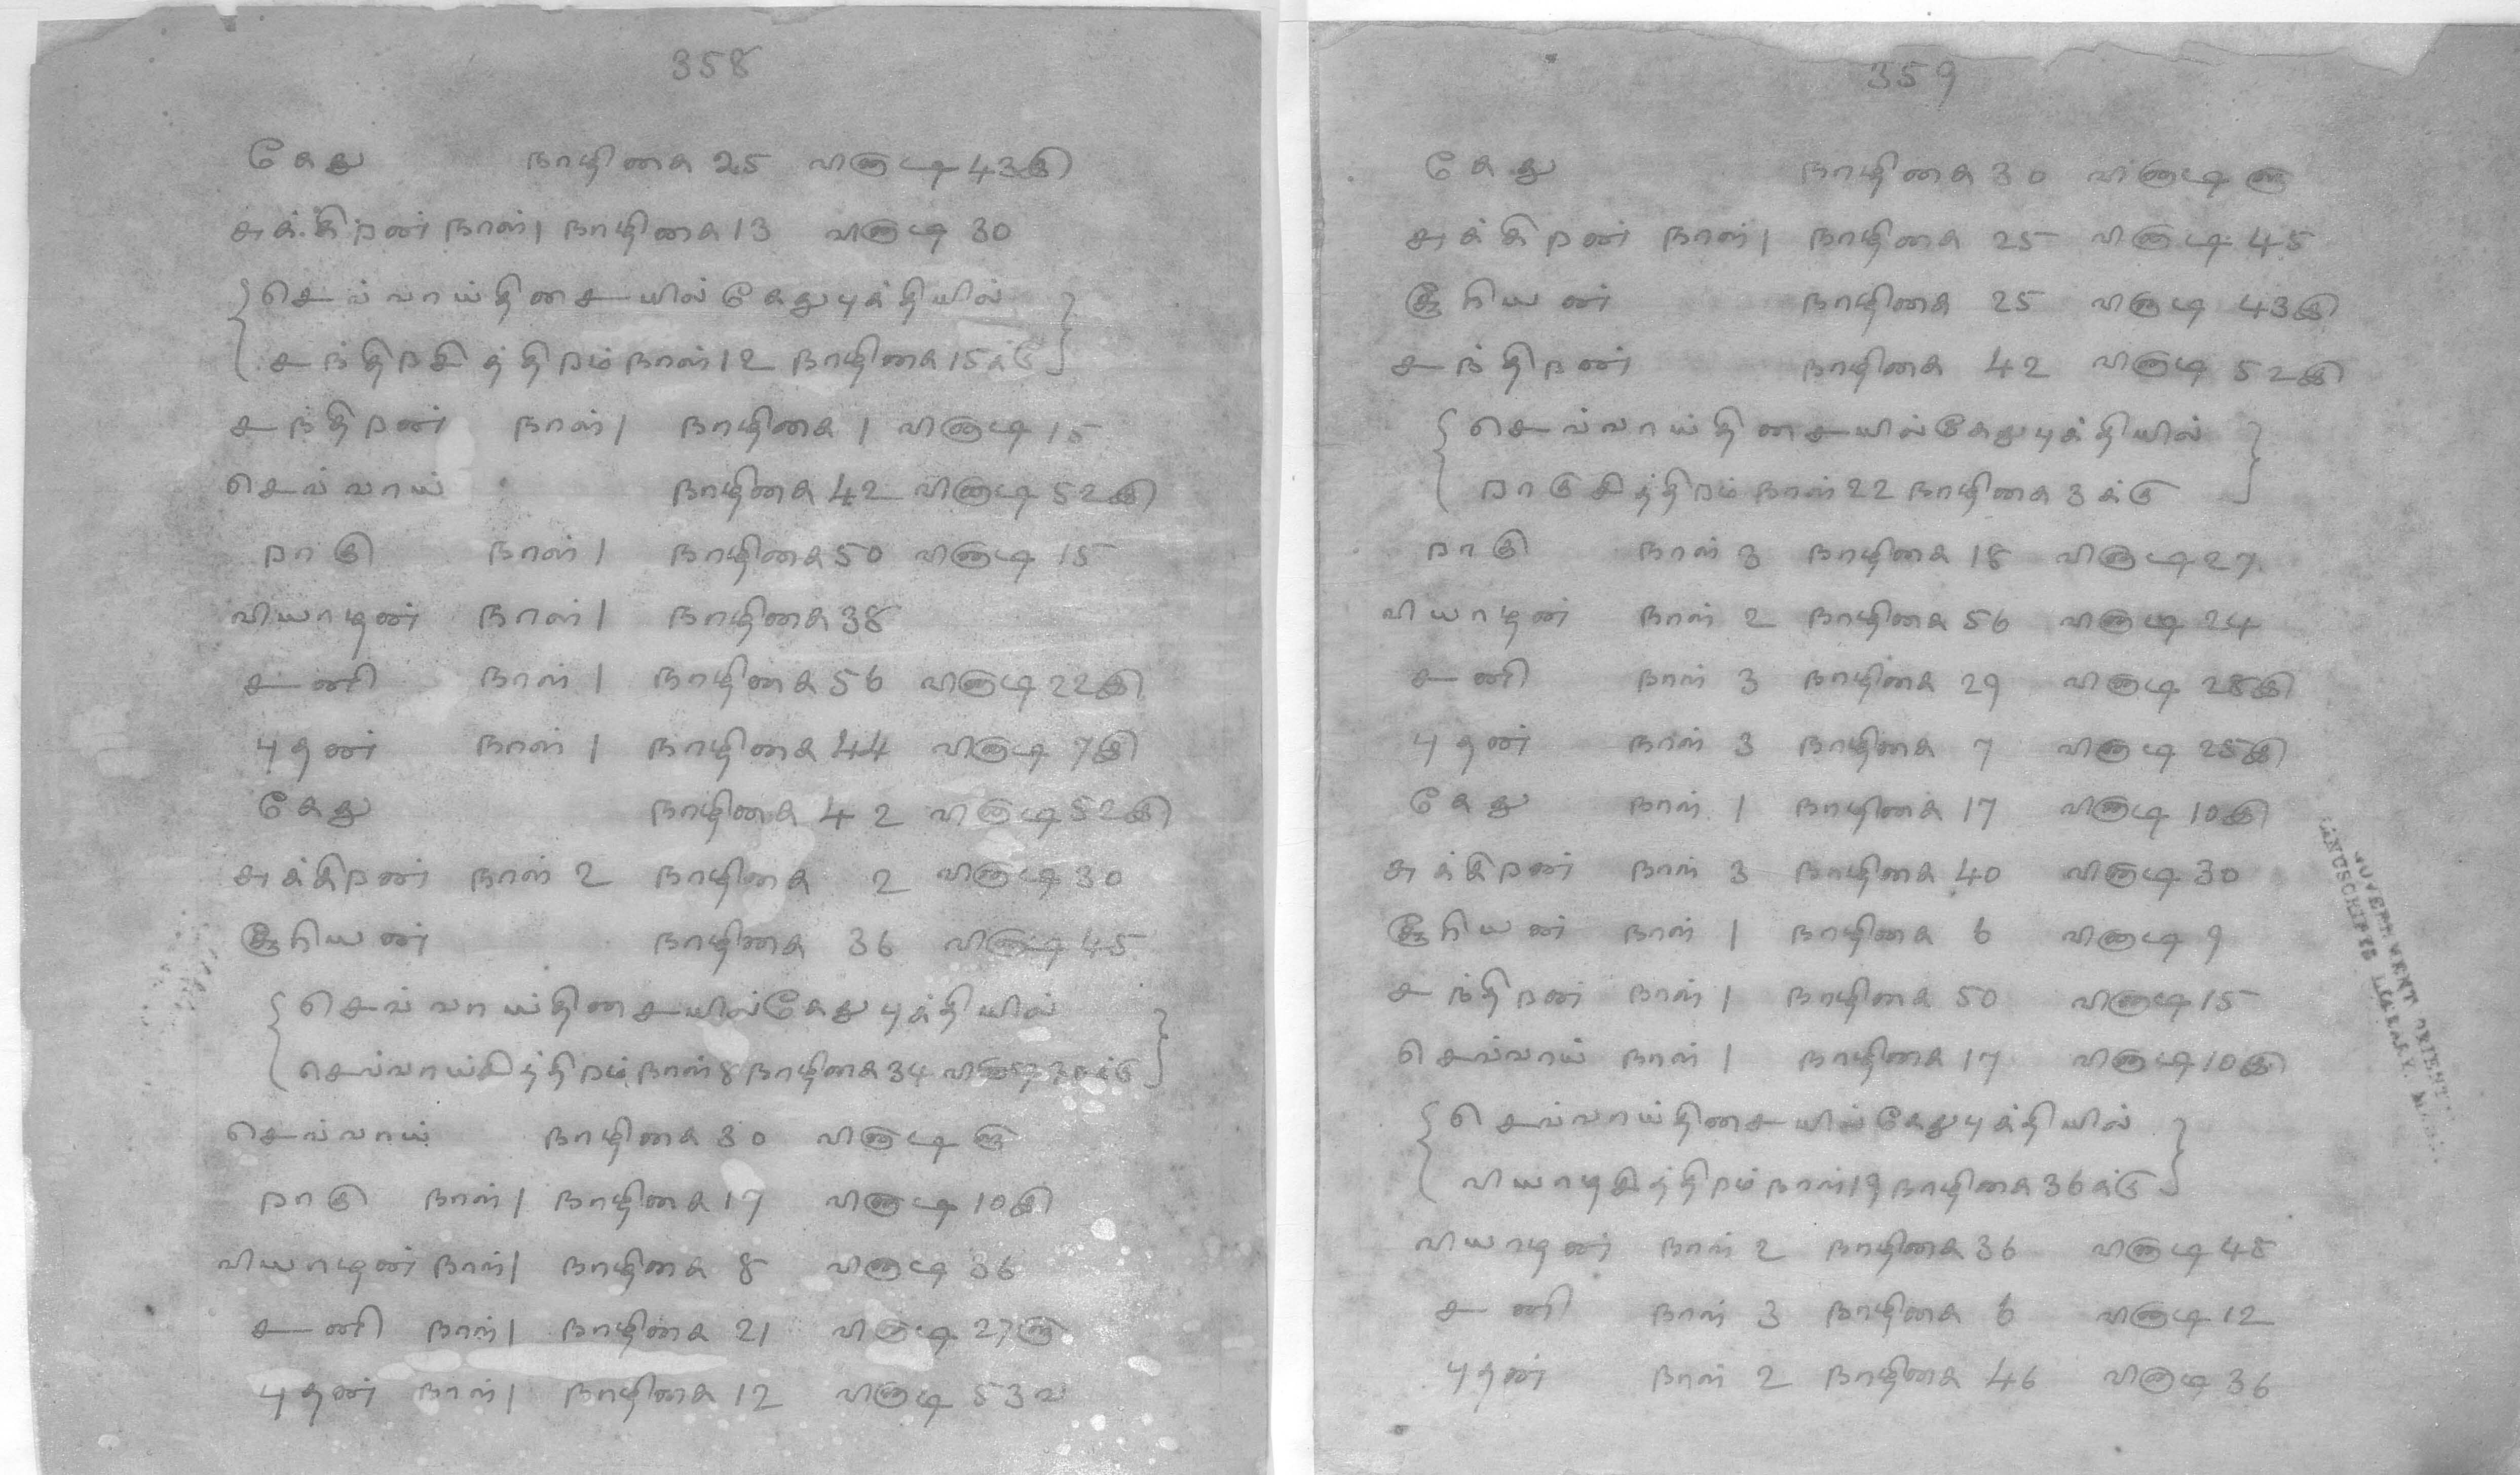 358
கேது நாழிகை 25 விநாடி 43இ
சுக்கிறன் நாள் 1 நாழிகை 13 விநாடி 30
{செவ்வாய்திசையில் கேதுபுக்தியில்
சந்திறசித்திறம் நாள் 12 நாழிகை 15க்கு}
சந்திறன் நாள் 1 நாழிகை 1 விநாடி 15
செவ்வாய் நாழிகை 42 விநாடி 52இ
றாகு நாள் 1 நாழிகை 50 விநாடி 15
வியாழன் நாள் 1 நாழிகை 38
சனி நாள் 1 நாழிகை 56 விநாடி 22இ
புதன் நாள் 1 நாழிகை 44 விநாடி 7இ
கேது நாழிகை 42 விநாடி 52இ
சுக்கிறன் நாள் 2 நாழிகை 2 விநாடி 30
சூரியன் நாழிகை 36 விநாடி 45
{செவ்வாய்திசையில் கேதுபுக்தியில்
செவ்வாய்சித்திறம் நாள் 8 நாழிகை 34 விநாடி 30க்கு}
செவ்வாய் நாழிகை 30 விநாடி
றாகு நாள் 1 நாழிகை 17 விநாடி 10இ
வியாழன் நாள் 1 நாழிகை 8 விநாடி 36
சனி நாள் 1 நாழிகை 21 விநாடி 27
புதன் நாள் 1 நாழிகை 12 விநாடி 53வ
359
கேது நாழிகை 30 விநாடி
சுக்கிறன் நாள் 1 நாழிகை 25 விநாடி 45
சூரியன் நாழிகை 25 விநாடி 43இ
சந்திறன் நாழிகை 42 விநாடி 52இ
{செவ்வாய்திசையில் கேதுபுக்தியில்
றாகுசித்திறம் நாள் 22 நாழிகை 3க்கு}
றாகு நாள் 3 நாழிகை 18 விநாடி 27
வியாழன் நாள் 2 நாழிகை 56 விநாடி 24
சனி நாள் 3 நாழிகை 29 விநாடி 28இ
புதன் நாள் 3 நாழிகை 7 விநாடி 25இ
கேது நாள் 1 நாழிகை 17 விநாடி 10இ
சுக்கிறன் நாள் 3 நாழிகை 40 விநாடி 30
சூரியன் நாள் 1 நாழிகை 6 விநாடி 9
சந்திறன் நாள் 1 நாழிகை 50 விநாடி 15
செவ்வாய் நாள் 1 நாழிகை 17 விநாடி 10இ
{செவ்வாய்திசையில் கேதுபுக்தியில்
வியாழசித்திறம் நாள் 19 நாழிகை 36க்கு}
வியாழன் நாள் 2 நாழிகை 36 விநாடி 48
சனி நாள் 3 நாழிகை 6 விநாடி 12
புதன் நாள் 2 நாழிகை 46 விநாடி 36